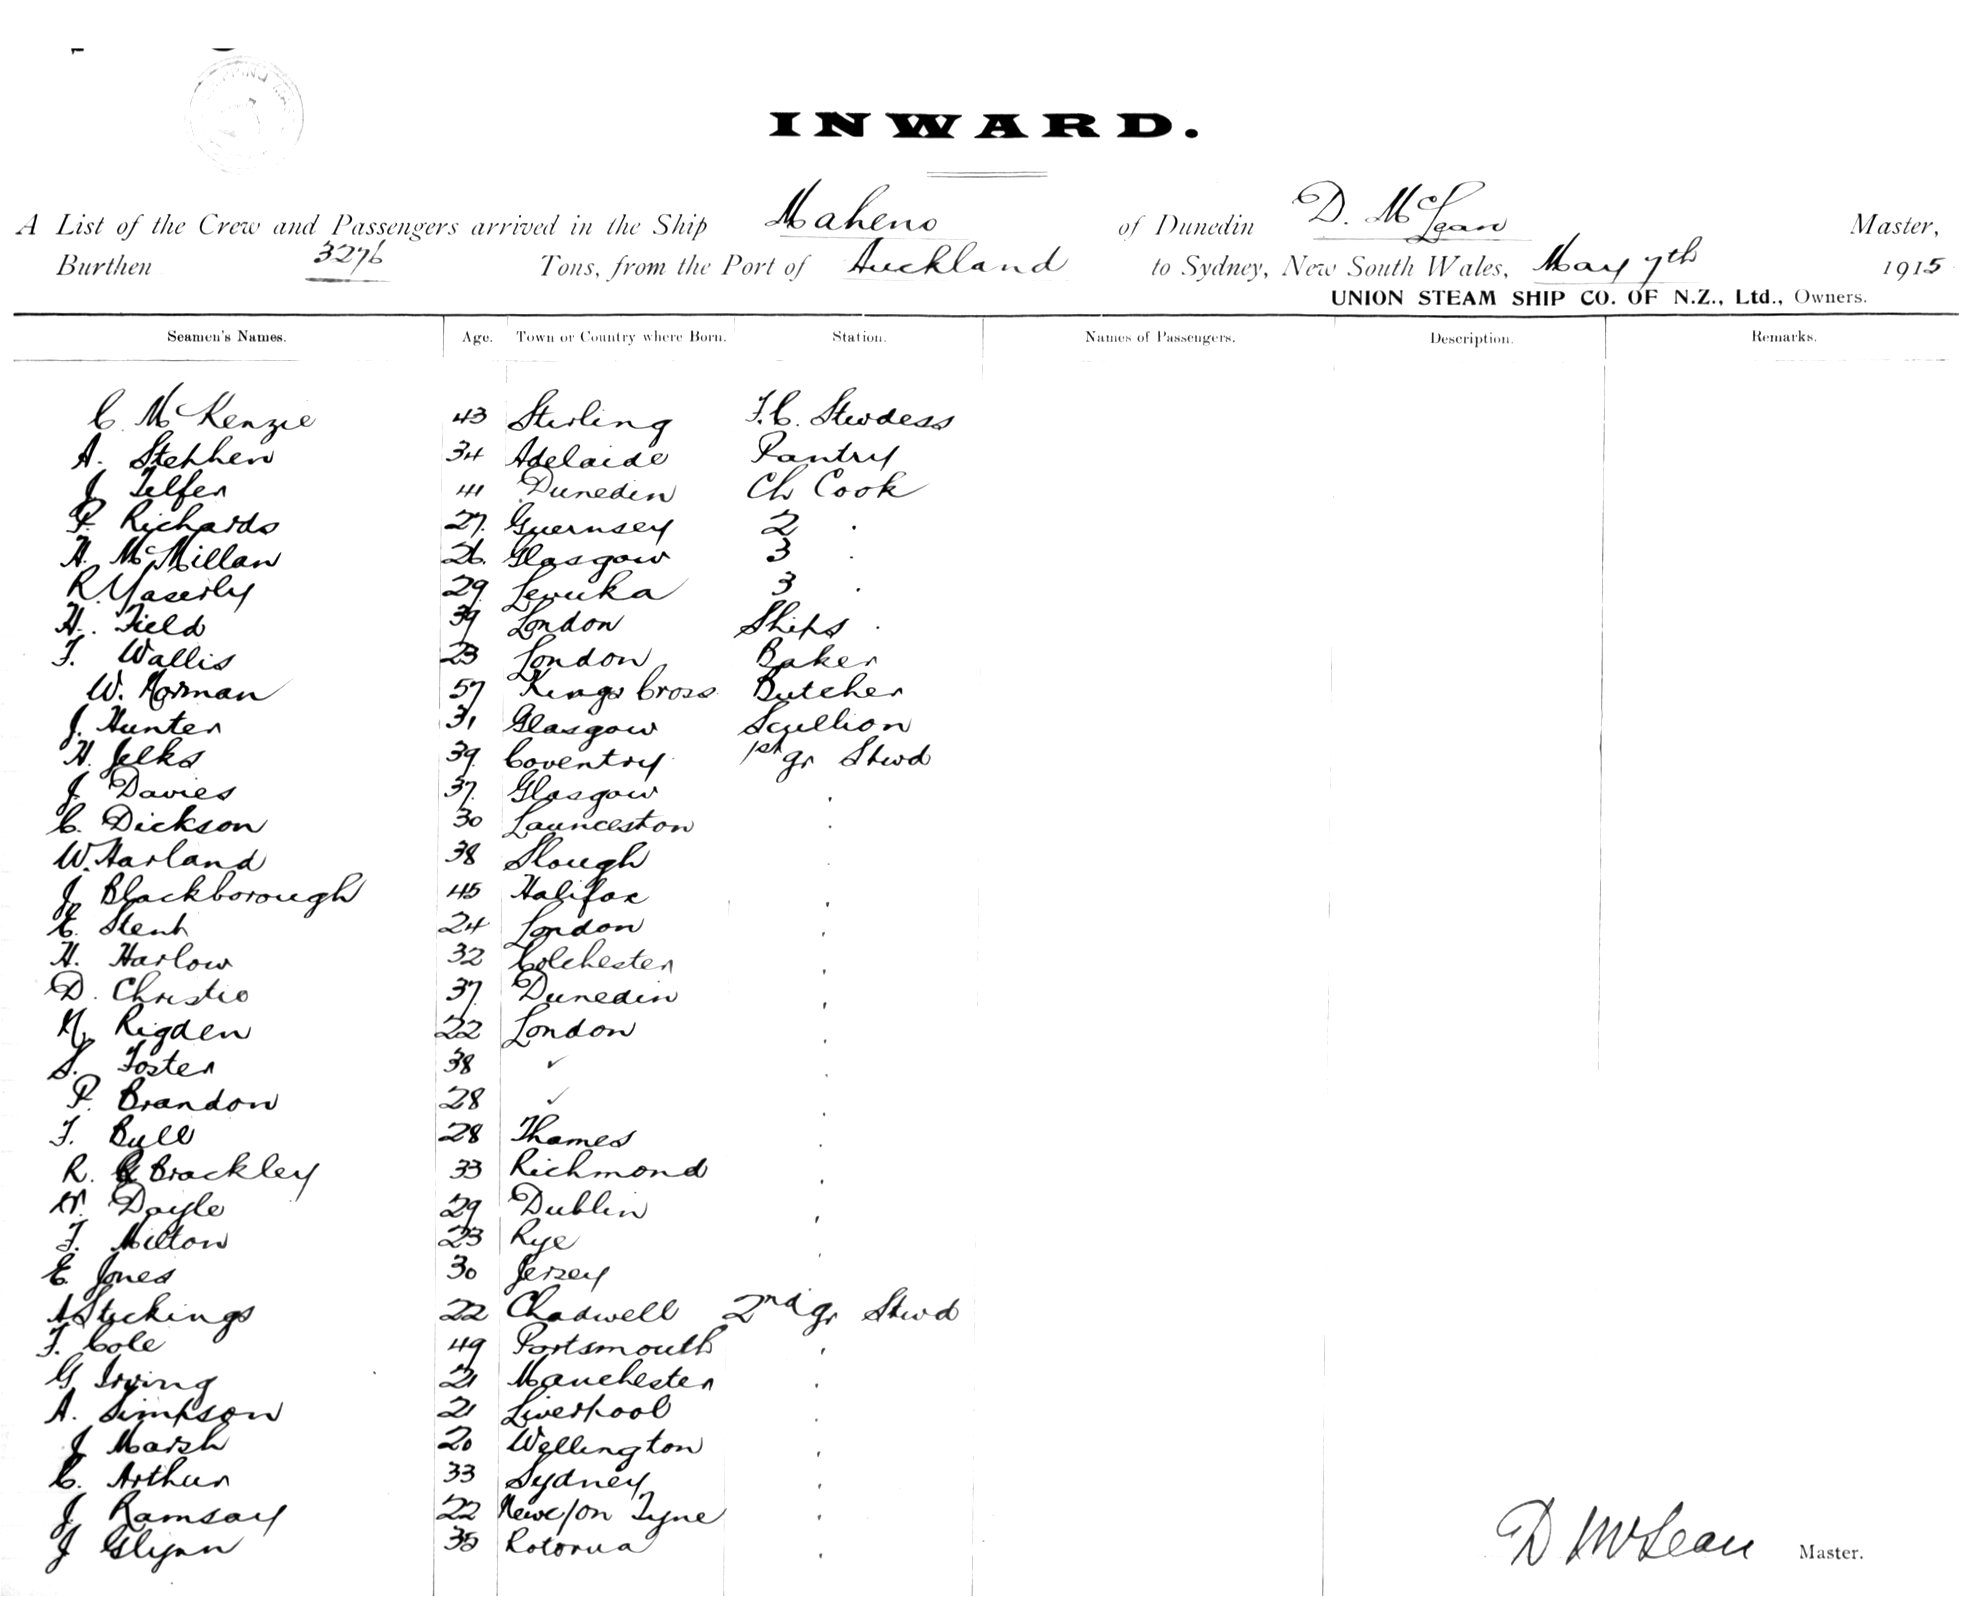 INWARD.
A List of the Crew and Passengers arrived in the Ship Maheno of Dunedin D. McLean Master,
Burthen 3276 Tons, from the Port of Auckland to Sydney, New South Wales, May 7th 1915
UNION STEAM SHIP CO. OF N.Z., Ltd., Owners.
Seamen's Names. Age. Town or Country where Born. Station. Names of Passengers. Description. Remarks.
C. McKenzie 43 Stirling F.C. Stwdess
A. Stephen 34 Adelaide Pantry
J Telfer 41 Dunedin Ch Cook
P. Richards 27 Guernsey 2 .
H. McMillan 26 Glasgow 3 .
R. Yaserly 29 Levuka 3 .
H. Field 39 London Ships .
F. Wallis 23 London Baker
W. Norman 57 Kings Cross Butcher
J. Hunter 31 Glasgow Scullion
H. Jelks 39 Coventry 1st gr Stwd
J Davies 37 Glasgow .
C. Dickson 30 Launceston .
W. Harland 38 Slough .
J Blackborough 45 Halifax .
E. Stent 24 London .
H. Harlow 32 Colchester .
D. Christie 37 Dunedin .
Rigden 22 London .
S. Foster 38 ✓ .
P. Brandon 28 ✓ .
F. Bull 28 Thames .
R. Brackley 33 Richmond .
W. Doyle 29 Dublin .
F. Milton 23 Rye .
E. Jones 30 Jersey
A Stockings 22 Chadwell 2nd gr Stwd
F. Cole 49 Portsmouth .
G Irving 21 Manchester .
A. Simpson 21 Liverpool .
J Marsh 20 Wellington .
C. Arthur 33 Sydney .
J Ramsay 22 Newc/on Tyne .
J Glynn 35 Rotorua .
D McLean Master.